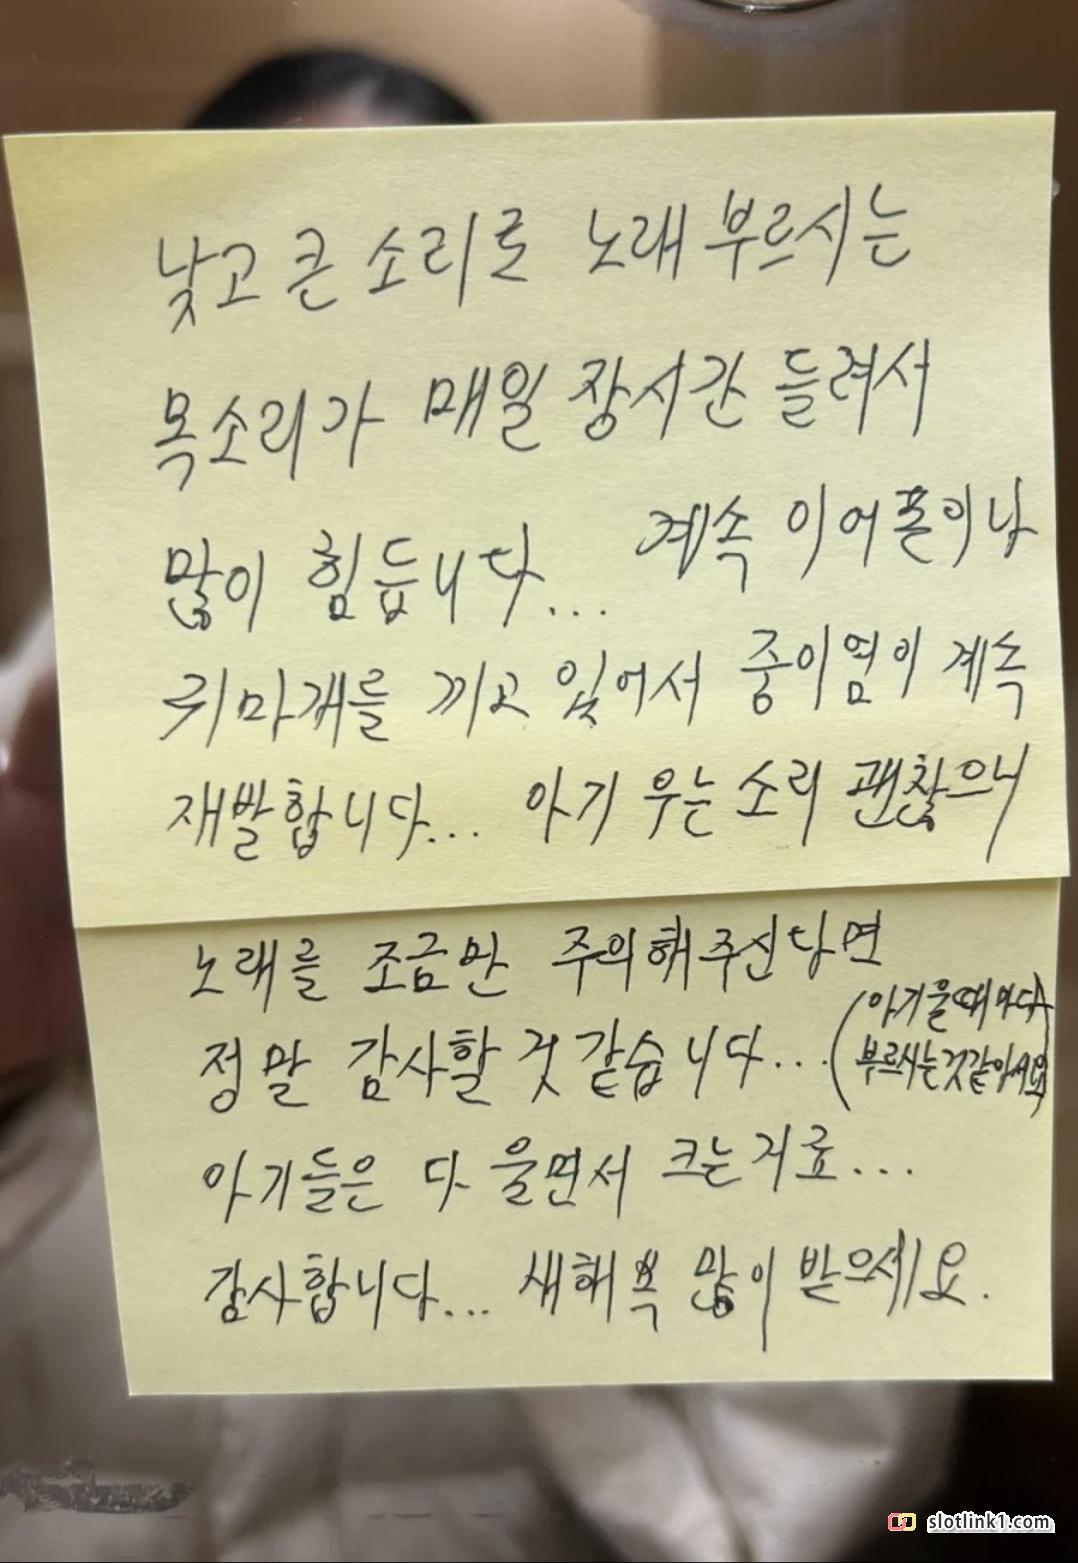 낮고 큰 소리로 노래 부르시는
목소리가 매일 장시간 들려서
많이 힘듭니다... 계속 이어폰이나
귀마개를 끼고 있어서 중이염이 계속
재발합니다... 아기 우는 소리 괜찮으니
노래를 조금만 주의해주신다면
정말 감사할 것 같습니다... (아기 울 때마다
부르시는것같아서요)
아기들은 다 울면서 크는거로...
감사합니다... 새해 복 많이 받으세요.
slotlink1.com